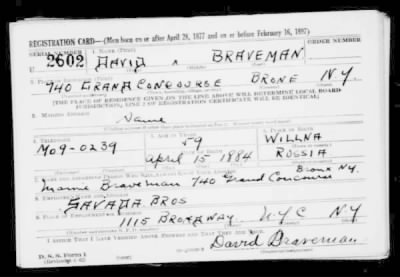 REGISTRATION CARD—(Men born on or after April 28, 1877 and on or before February 16, 1897)
SERIAL NUMBER 1. NAME (Print) ORDER NUMBER
U 2602 DAVID A BRAVEMAN
2. PLACE OF RESIDENCE (Print)
740 GRAND CONCOURSE BRONX NY
[THE PLACE OF RESIDENCE GIVEN ON THE LINE ABOVE WILL DETERMINE LOCAL BOARD
JURISDICTION; LINE 2 OF REGISTRATION CERTIFICATE WILL BE IDENTICAL]
3. MAILING ADDRESS
Same
4. TELEPHONE 5. AGE IN YEARS 6. PLACE OF BIRTH
59 WILLNA
MO9-0239 April 15 1884 RUSSIA
7. NAME AND ADDRESS OF PERSON WHO WILL ALWAYS KNOW YOUR ADDRESS
Mamie Braveman 740 Grand Concourse Bronx NY.
8. EMPLOYER'S NAME AND ADDRESS
SAVADA BROS
9. PLACE OF EMPLOYMENT OR BUSINESS
1115 BROADWAY NYC NY
I AFFIRM THAT I HAVE VERIFIED ABOVE ANSWERS AND THAT THEY ARE TRUE.
D. S. S. Form 1
David Braveman